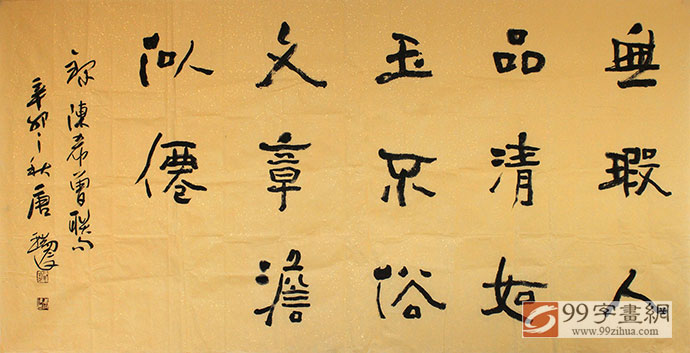 無瑕人
品清如
玉不俗
文章澹
似僊
録陳希曾聯句
辛卯之秋唐
99字畫網
www.99zihua.com